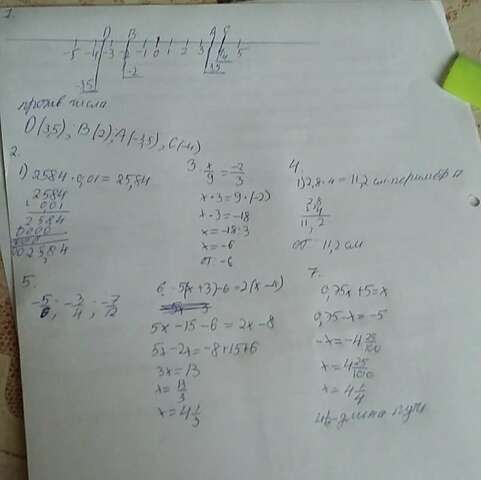 1.
D B A C
-5 -4 -3 -2 -1 0 1 2 3 4 5
-3,5 -2 3,5
против числа
D(3,5), B(2), A(-3,5), C(-4)
2.
1) 2584 · 0,01 = 25,84
2584
0,01
2584
0000
0025,84
3. x/9 = -2/3
x · 3 = 9 · (-2)
x · 3 = -18
x = -18 : 3
x = -6
от -6
4.
1) 2,8 · 4 = 11,2 см периметр
2,8
4
11,2
от 11,2 см
5.
-5/6 ; -3/4 ; -7/12
6. -5(x+3)-6=2(x-4)
5x-15-6=2x-8
5x-2x=-8+15+6
3x=13
x=13/3
x=4 1/3
7.
0,75x+5=x
0,75-x=-5
-x=-4 25/100
x=4 25/100
x=4 1/4
длина пути